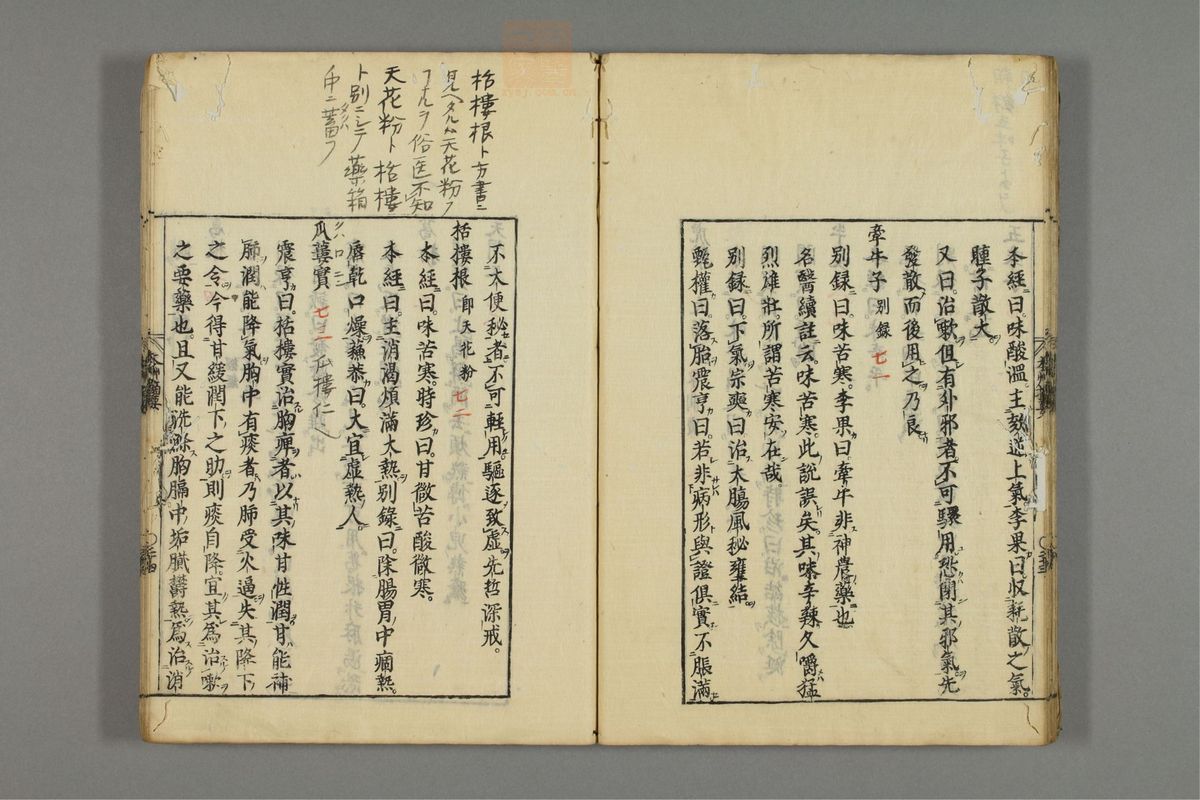 本經曰味酸溫主欬逆上氣李果曰収耗散之氣
瞳子散大
又曰治嗽但有外邪者不可驟用恐閉其邪氣先
發散而後用之乃良
牽牛子 別錄 七一
別録曰味苦寒李果曰牽牛非神農藥也
名醫續註云味苦寒此説誤矣其味辛辣久嚼猛
烈雄壯所謂苦寒安在哉
別録曰下氣宗奭曰治大膓風秘壅結
甄權曰落胎震亨曰若非病形與證俱實不脹滿
不大便秘者不可輕用驅逐致虛先哲深戒
栝樓根 即天花粉 七二
本經曰味苦寒時珍曰甘微苦酸微寒
本經曰主消渴煩滿大熱別錄曰除腸胃中痼熱
唇乾口燥蘇恭曰大宜虛熱人
瓜蔞實 七三 瓜樓仁
震亨曰栝樓實治胸痺者以其味甘性潤甘能補
肺潤能降氣胸中有痰者乃肺受火逼失其降下
之令今得甘緩潤下之助則痰自降宜其爲治嗽
之要藥也且又能洗滌胸膈中垢膩鬱熱爲治消
栝樓根ト方書ニ
見ヘタルハ天花粉ノ
ヿナルヲ俗医不知
天花粉ト栝樓
ト別ニシテ藥箱
中ニ蓄フ